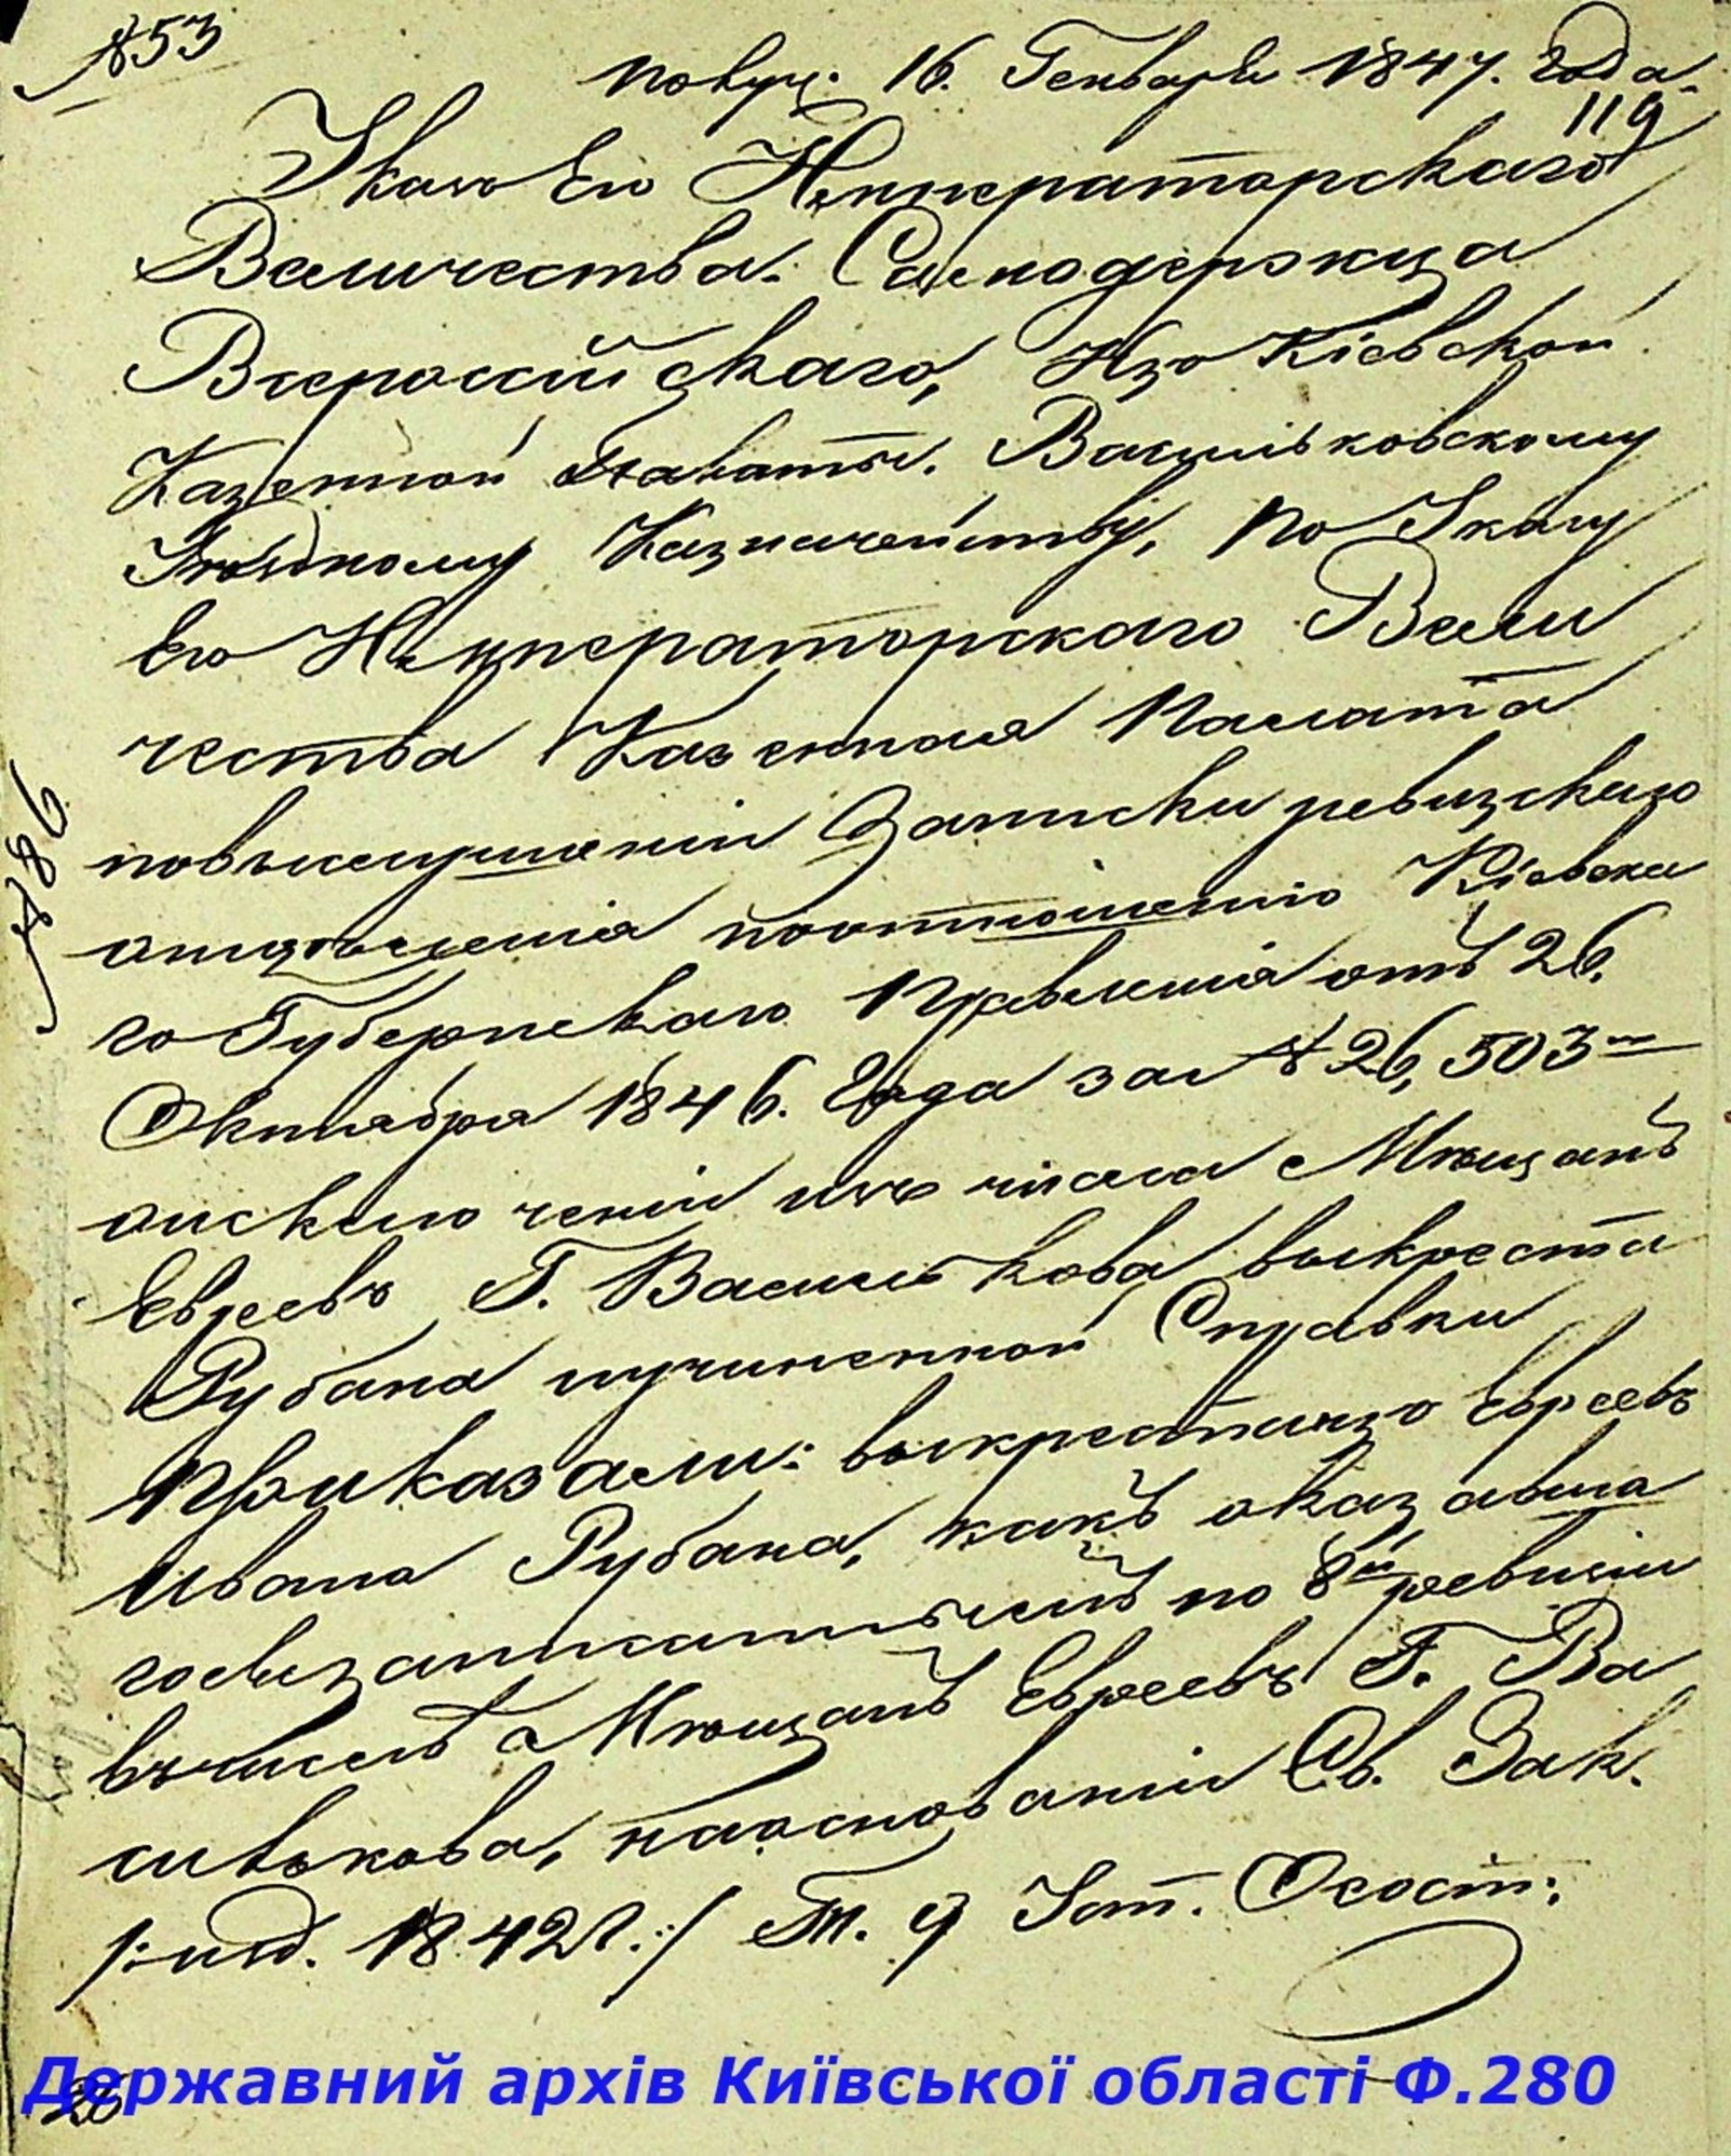 № 53
получ. 16. Генваря 1847. года.
119
Указъ Его Императорскаго
Величества. Самодержца
Всероссійскаго, Изъ Кіевской
Казенной Палаты. Васильковскому
Уѣздному Казначейству, По Указу
Его Императорскаго Вели
чества Казенная Палата
повыслушаніи Записки ревизскаго
отдѣленія поотношенію Кіевска
го Губернскаго Правленія отъ 26.
Октября 1846. Года за № 26,503м
оисключеніи изъ числа Мѣщанъ
Евреевъ Г. Василькова выкреста
Рубана иучиненной Справки
Приказали: выкрестаизъ Евреевъ
Ивана Рубана, какъ оказавша
госязаписаннымъ по 8й ревизіи
вчислѣ Мѣщанъ Евреевъ Г. Ва
силькова, наоснованіи Св. Зак.
/: изд. 1842 г. :/ Т. 9 Уст. Осост:
№ 86
26
Державний архів Київської області Ф.280